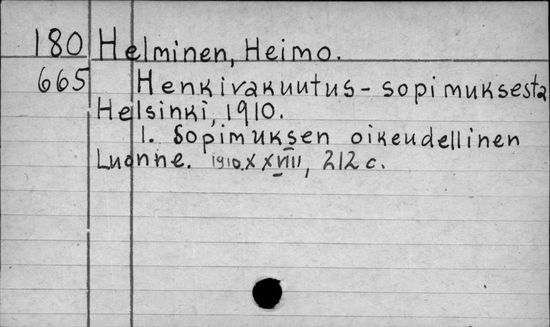 180 Helminen, Heimo.
665 Henkivakuutus-sopimuksesta
Helsinki, 1910.
1. Sopimuksen oikeudellinen
Luonne. 1910. XXVIII, 212 c.